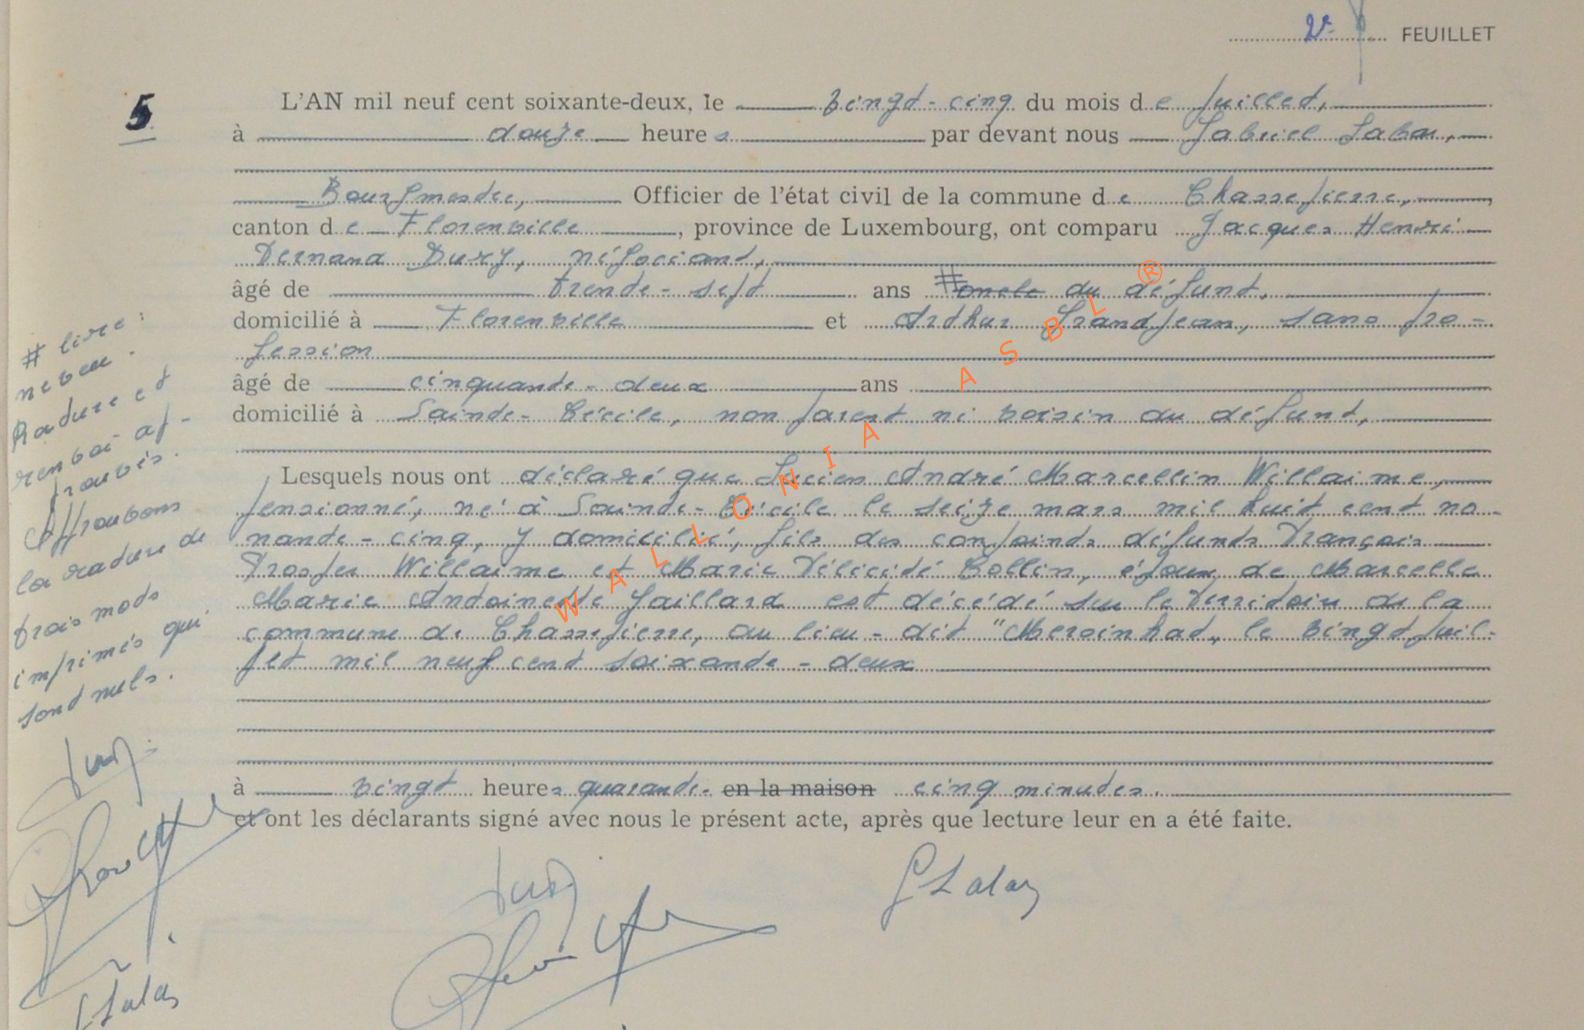 2e FEUILLET
5
L'AN mil neuf cent soixante-deux, le vingt-cinq du mois de juillet,
à douze heures par devant nous Gabriel Labar,
Bourgmestre, Officier de l'état civil de la commune de Chassepierre,
canton de Florenville, province de Luxembourg, ont comparu Jacques Henri
Fernand Dury, négociant,
âgé de trente-sept ans # oncle du défunt,
domicilié à Florenville et Arthur Grandjean, sans pro-
fession
âgé de cinquante-deux ans
domicilié à Sainte-Cécile, non parent ni voisin du défunt,
Lesquels nous ont déclaré que Lucien André Marcellin Willaime,
pensionné, né à Sainte-Cécile le seize mars mil huit cent no-
nante-cinq, y domicilié, fils des conjoints défunts François
Prosper Willaime et Marie Félicité Collin, époux de Marcelle
Marie Antoinette Gaillard est décédé sur le territoire de la
commune de Chassepierre, au lieu-dit "Mersinhat, le vingt juil-
let mil neuf cent soixante-deux
à vingt heures quarante- en la maison cinq minutes.
et ont les déclarants signé avec nous le présent acte, après que lecture leur en a été faite.
# lire :
neveu.
Rature et
renvoi ap-
prouvés.
Approuvons
la rature de
trois mots
imprimés qui
sont nuls.
Dury
Dury
WALLONIA ASBL ®